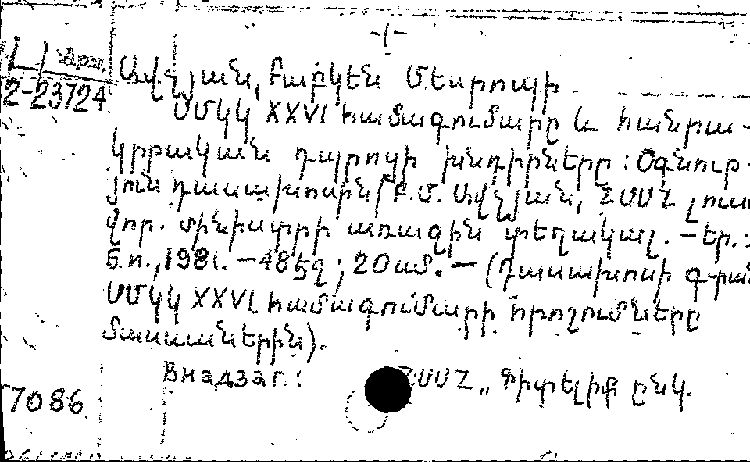 -1-
2-23724
Ավչյան, Բաբկեն Մեսրոպի
ՍՄԿԿ XXVI համագումարը և հանրա-
կրթական դպրոցի խնդիրները: Օգնութ-
յուն դասախոսին/Բ.Մ. Ավչյան, ՀՍՍՀ լուս
վոր. մինիստրի առաջին տեղակալ. – Եր.:
Б.и., 1981. – 48եջ; 20սմ. – (Դասախոսի գրադ
ՍՄԿԿ XXVI համագումարի որոշումները
մասսաներին).
Внадзаг.: ՀՍՍՀ „Գիտելիք" ընկ.
7086